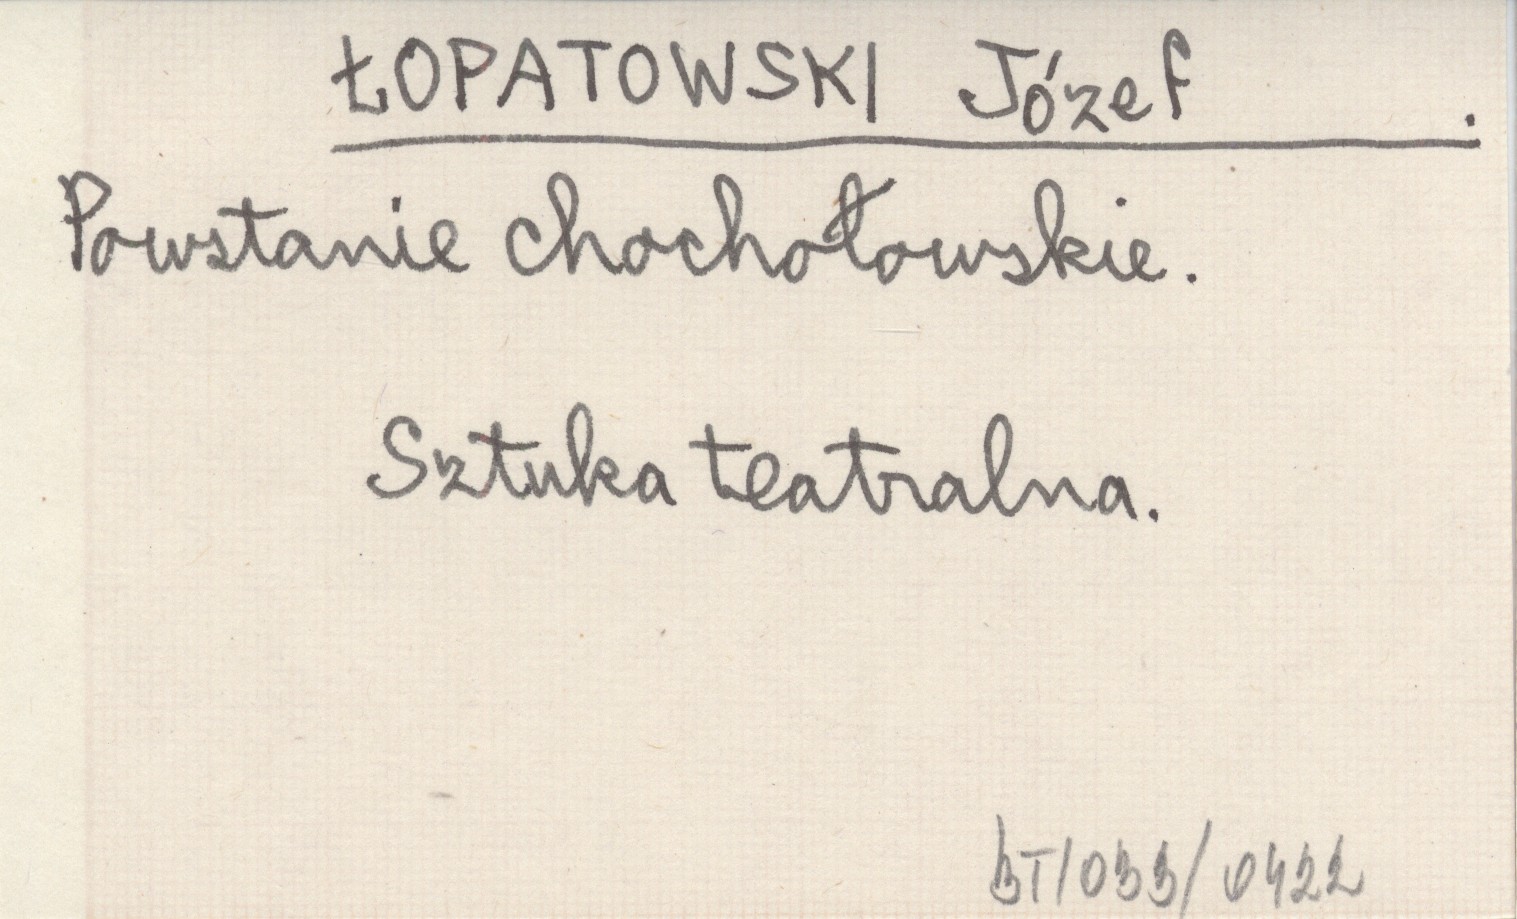 ŁOPATOWSKI Józef .
Powstanie chochołowskie.
Sztuka teatralna.
BT/033/0422